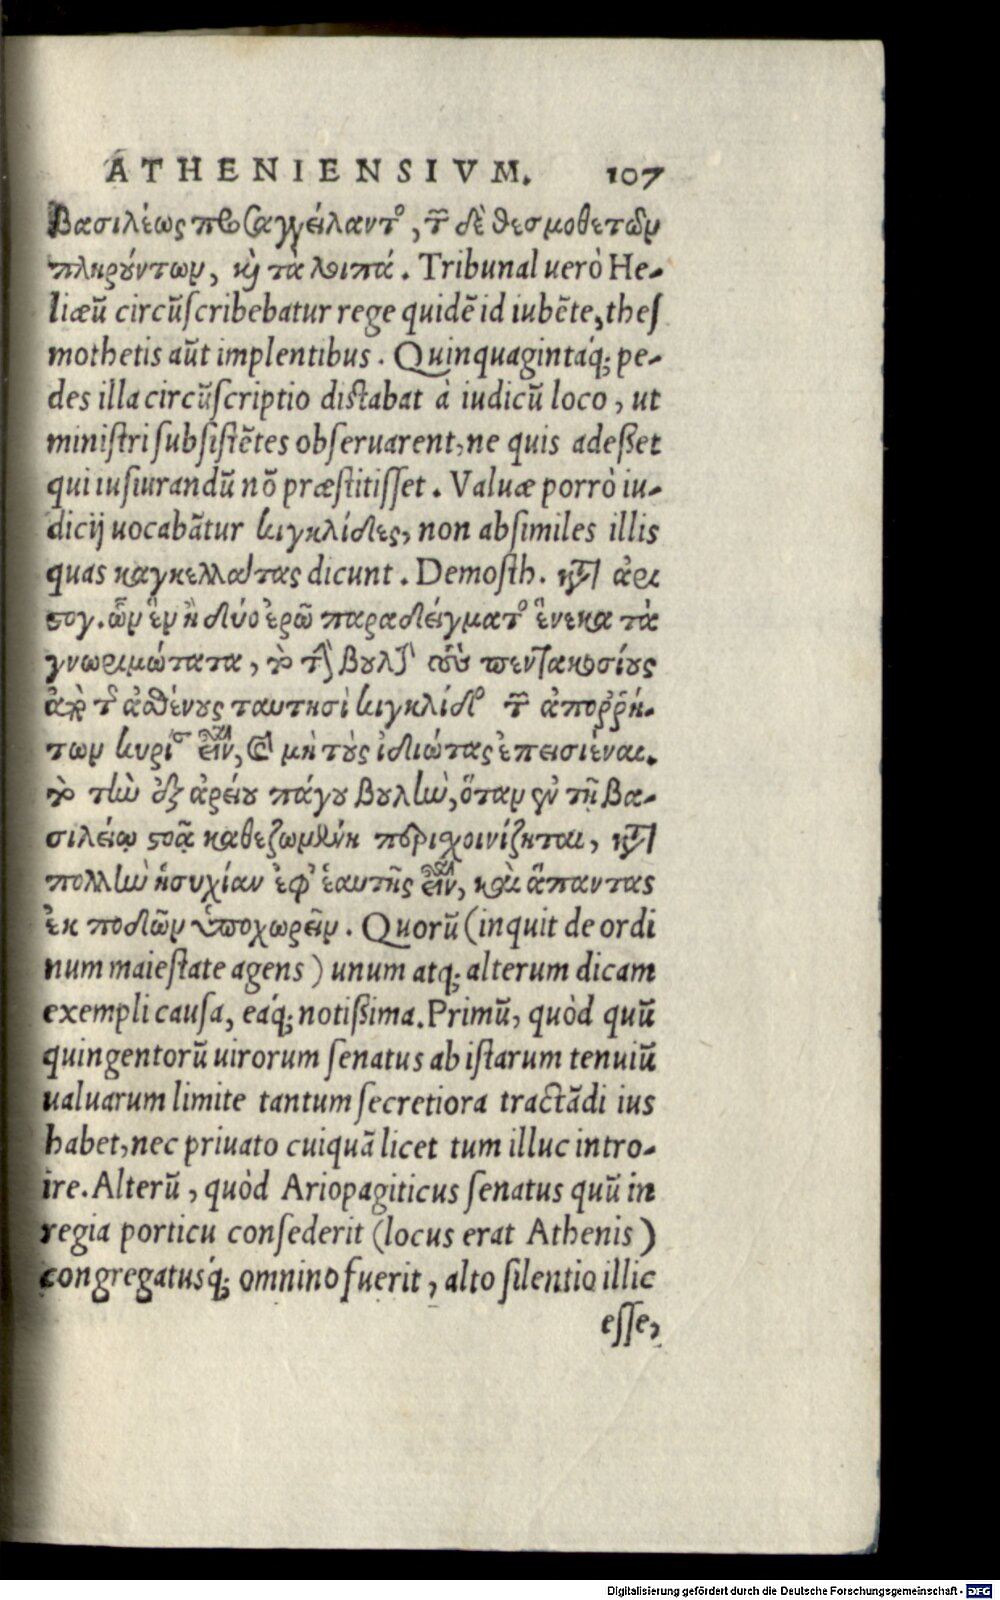 ATHENIENSIVM. 107
βασιλέως παραγγείλαντος, τῶν δὲ θεσμοθετῶν
πληρούντων, καὶ τὰ λοιπά. Tribunal uerò He-
liæū circūſcribebatur rege quidē id iubēte, theſ
mothetis aūt implentibus. Quinquagintáq; pe-
des illa circūſcriptio diſtabat à iudicū loco, ut
miniſtri ſubſiſtētes obſeruarent, ne quis adeßet
qui iuſiurandū nō præſtitiſſet. Valuæ porrò iu-
dicij uocabātur κιγκλίδες, non abſimiles illis
quas καγκελλωτας dicunt. Demoſth. κατ' ἀρι
στογ. ὧν ἓν ἢ δύο ἐρῶ παραδείγματος ἕνεκα τὰ
γνωριμώτατα, τὸ τὴν βουλὴν τοὺς πεντακοσίους
ἀπὸ τῆς ἀσθένους ταυτησὶ κιγκλίδος τῶν ἀποῤῥή-
των κυρίαν εἶναι, καὶ μὴ τοὺς ἰδιώτας ἐπεισιέναι.
τὸ τὴν ἐξ ἀρείου πάγου βουλὴν, ὅταν ἐν τῇ βα-
σιλείῳ στοᾷ καθεζωμένη περιχοινίζηται, κατὰ
πολλὴν ἡσυχίαν ἐφ' ἑαυτῆς εἶναι, καὶ ἅπαντας
ἐκ ποδῶν ὑποχωρεῖν. Quorū (inquit de ordi
num maieſtate agens) unum atq; alterum dicam
exempli cauſa, eáq; notißima. Primū, quòd quū
quingentorū uirorum ſenatus ab iſtarum tenuiū
ualuarum limite tantum ſecretiora tractādi ius
habet, nec priuato cuiquā licet tum illuc intro-
ire. Alterū, quòd Ariopagiticus ſenatus quū in
regia porticu conſederit (locus erat Athenis)
congregatusq́; omnino fuerit, alto ſilentio illic
eſſe,
Digitalisierung gefördert durch die Deutsche Forschungsgemeinschaft - DFG